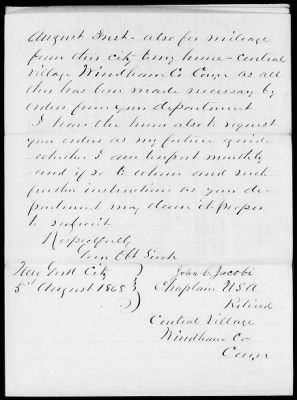 August Inst - also for mileage
from this city to my home - Central
Village Windham Co Conn as all
this has been made necessary by
orders from your department
I have the honor also to request
your orders as my future guide
whether I am to report monthly
and if so to whom and such
further instructions as your de-
partment may deem it proper
to submit
Respectfully
Your Obt Servt
New York City
5th August 1865
John C. Jacobi
Chaplain U.S.A
Retired
Central Village
Windham Co
Conn